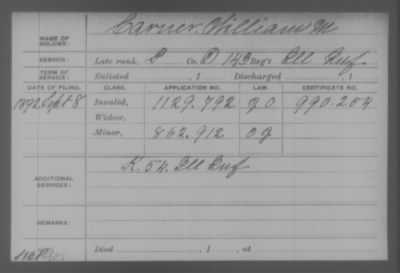 NAME OF SOLDIER: Carner, William M
SERVICE: Late rank, P Co. D 143 Reg't Ill Inf.
TERM OF SERVICE: Enlisted , 1 Discharged , 1
DATE OF FILING. CLASS. APPLICATION NO. LAW. CERTIFICATE NO.
1892 Sept 8 Invalid, 1129.792 990.254
Widow,
Minor, 862.912
K. 54. Ill Inf
ADDITIONAL SERVICES:
REMARKS:
Died , 1 , at